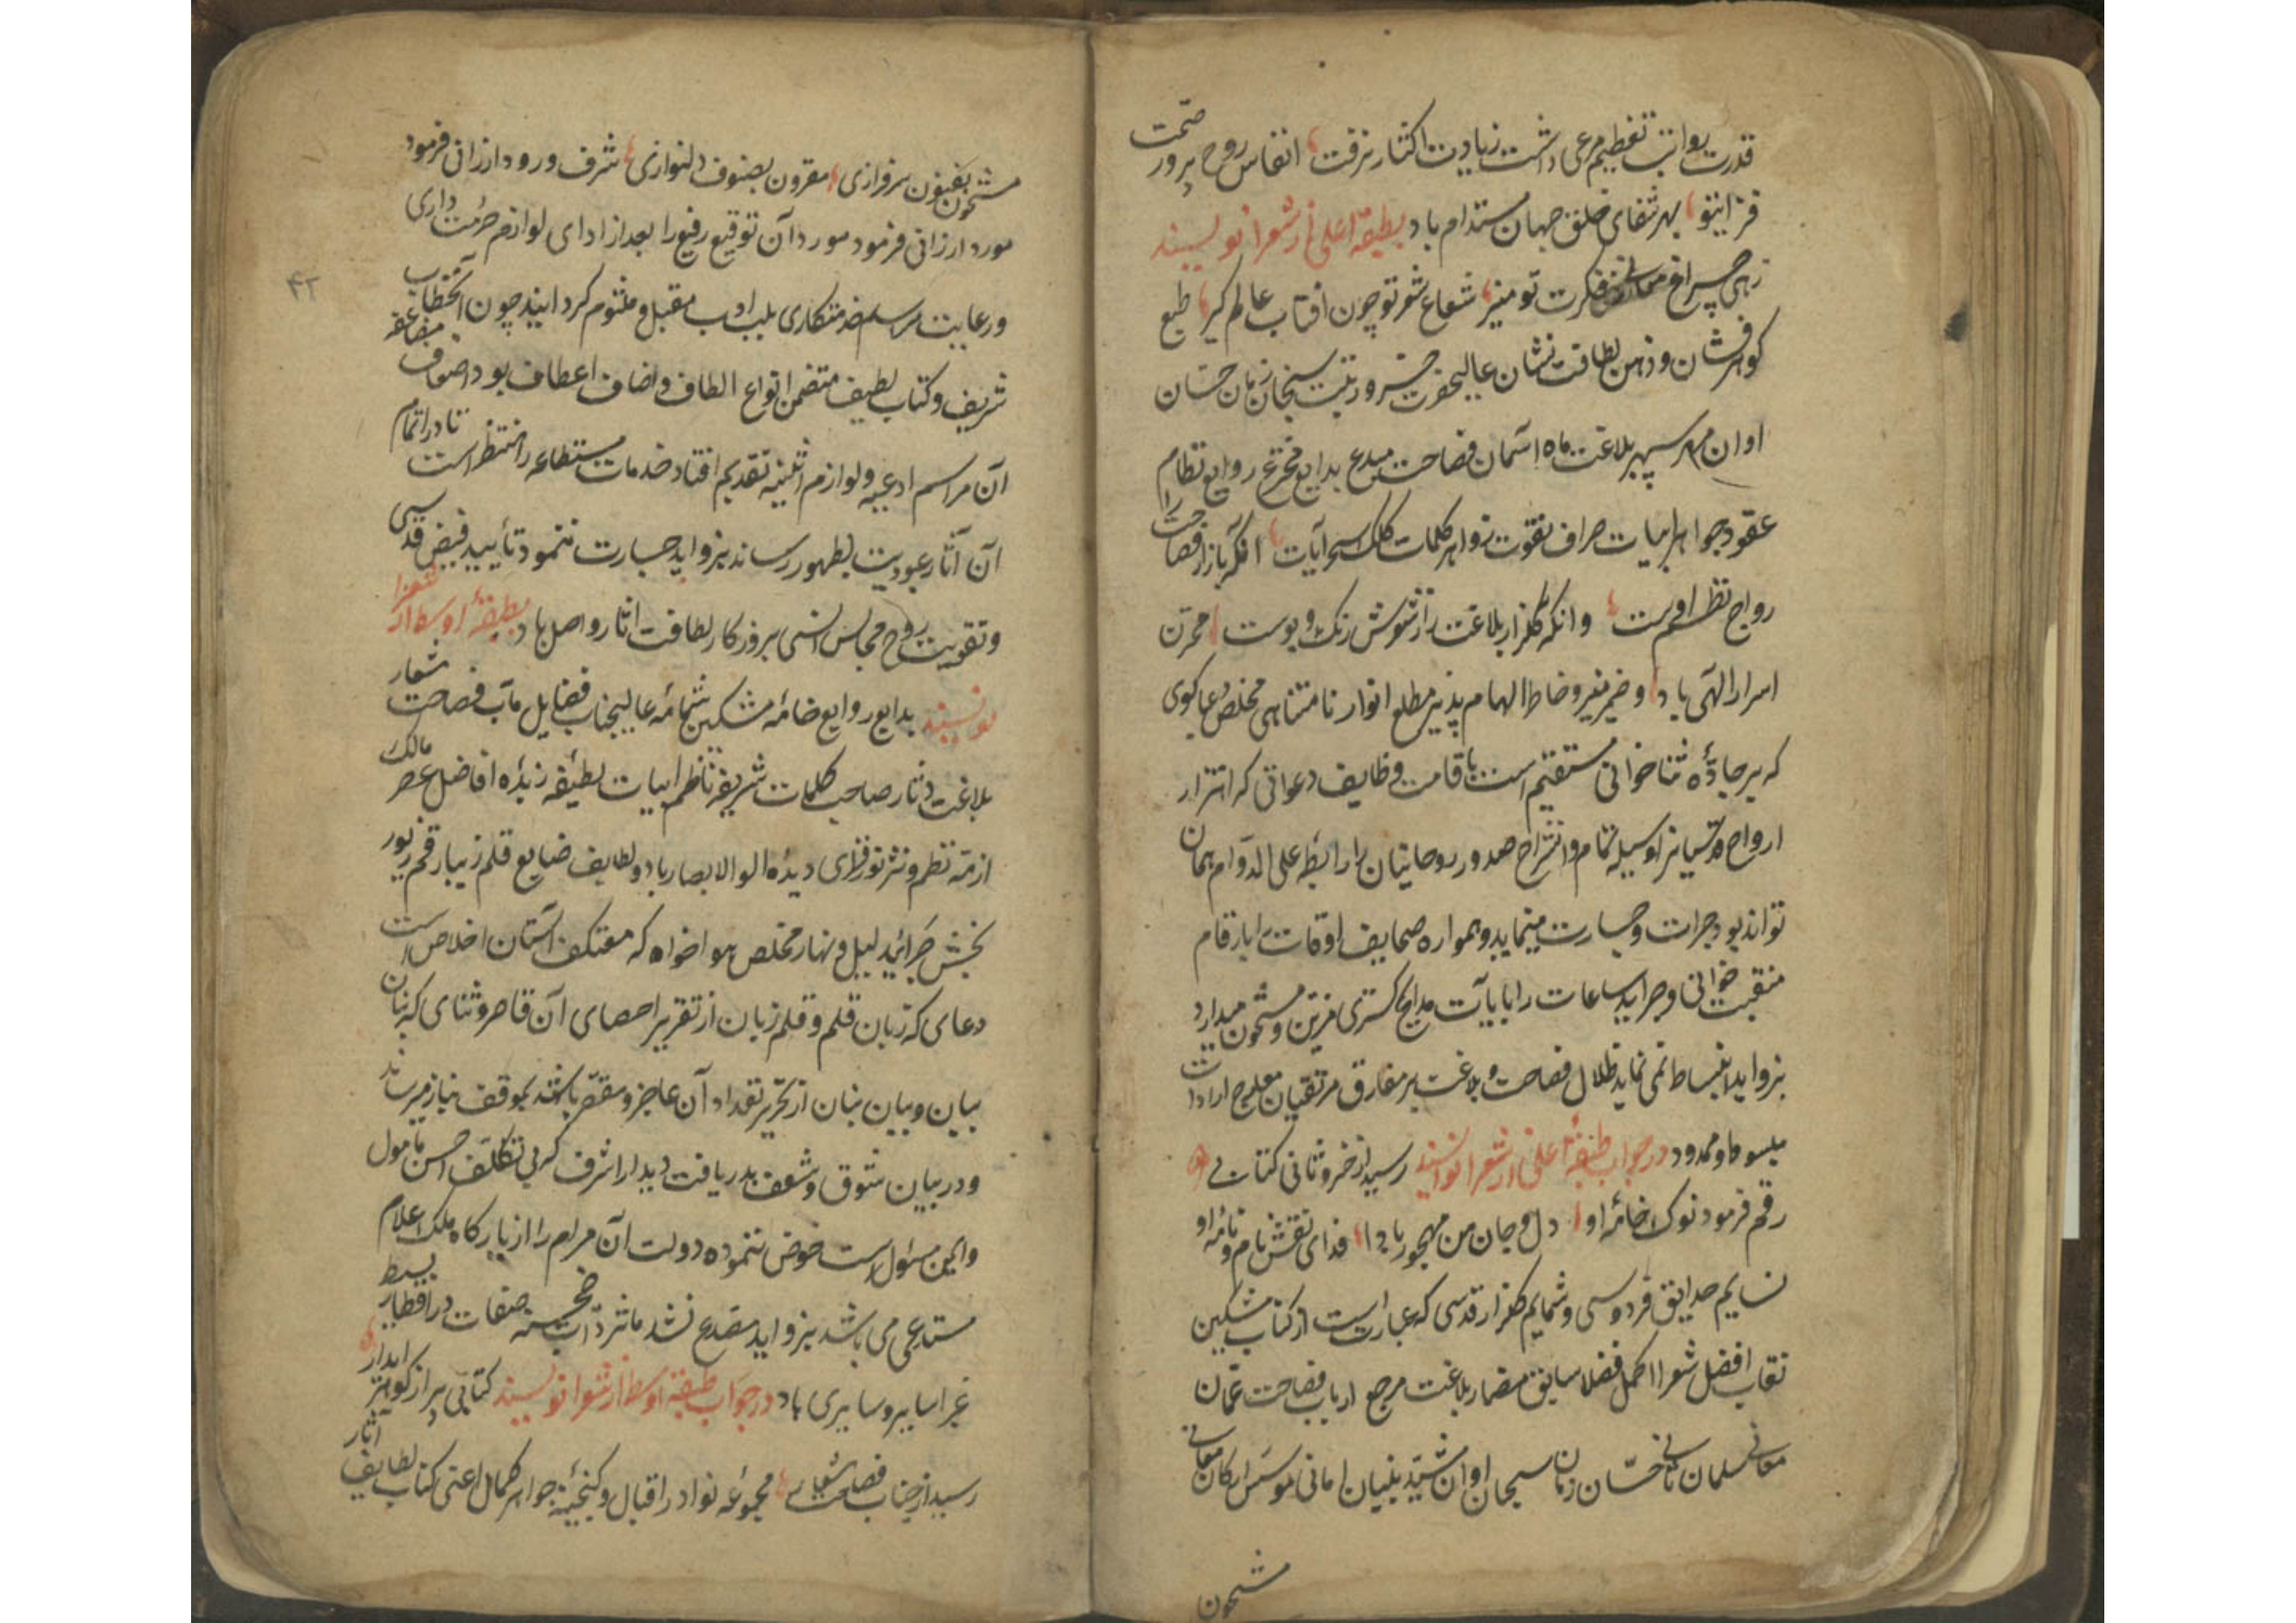 قدرت رواتب تعظیم مرعی داشت زیادت اکثار نرفت انفاس روح پرور صحت
فزا یتو بهر شفای خلق جهان مستدام باد بطبقهٔ اعلی از شعرا نویسند
زهی چراغ معانی ز فکرت تو منیر شعاع شعر تو چون افتاب عالم کیر طبع
کوهر فشان و ذهن لطافت نشان عالیحضرت خسرو رتبت سبحان زمان حسان
اوان مهر سپهر بلاغت ماه آسمان فصاحت مبدع بدایع مخترع روایع نظام
عقود جواهر ابیات صراف نقود زواهر کلمات کلک سحر آیات انکه بازار فصاحت را
رواج نظم اوست وانکه کلزار بلاغت را ز شعرش رنک و بوست مخزن
اسرار الهی باد و ضمیر منیر و خاطر الهام پذیر مطلع انوار نامتناهی مخلص دعاکوی
که بر جادهٔ ثناخوانی مستقیم است باقامت وظایف دعواتی که اهتزاز
ارواح قدسیانرا وسیلهٔ تمام و انشراح صدور روحانیان را رابطهٔ علی الدوام همان
تواند بود جرات و جسارت مینماید و همواره صحایف اوقات را بارقام
منقبت خوانی و جراید ساعات را بآیات مدایح کستری مزین و مشحون میدارد
بزواید انبساط نمی نماید ظلال فصاحت و بلاغت بر مفارق مرتقیان معارج ارادات
مبسوط و ممدود در جواب طبقهٔ اعلی از شعرا نویسند رسید از خسرو ثانی کتابی
رقم فرمود نوک خامهٔ او دل و جان من مهجور بادا فدای نقش نام و نامهٔ او
نسایم حدایق فردوسی و شمایم کلزار قدسی که عبارتست از کتاب مشکین
نقاب افضل شعرا اکمل فضلا سابق مضمار بلاغت مرجع ارباب فصاحت عمان
معانی سلمان ثانی حسان زمان سبحان اوان مشید بنیان امانی موسس ارکان معانی
مشحون
مشحون بفنون سرفرازی مقرون بصنوف دلنوازی شرف ورود ارزانی فرمود
مورد ارزانی فرمود مورد آن توقیع رفیع را بعد از ادای لوازم حرمت داری
ورعایت مراسم خدمتکاری بلب ادب مقبل و ملثوم کردانید چون آنخطاب
شریف و کتاب لطیف متضمن انواع الطاف و اصناف اعطاف بود اضعاف مضاعفه
آن مراسم ادعیه و لوازم اثنیه تقدیم افتاد خدمات مستطاعه را منتظر است تا در اتمام
آن آثار عبودیت بظهور رساند بزواید جسارت ننمود تأیید فیض قدسی
وتقویت روح مجالس انسی بروزکار لطافت اثار واصل باد بطبقهٔ اوسط از شعرا
نویسند بدایع روایع خامهٔ مشکین شمامهٔ عالیجناب فضایل مآب فصاحت شعار
بلاغت دثار صاحب کلمات شریفه ناظم ابیات لطیفه زبدهٔ افاضل عصر مالک
ازمهٔ نظم و نثر نورفزای دیدهٔ الو الابصار باد و لطایف صنایع قلم زیبا رقم زیور
بخش جرائد لیل و نهار مخلص هواخواه که معتکف آستان اخلاص است
دعای که زبان قلم و قلم زبان از تقریر احصای آن قاصر و ثنای که بنان
بیان و بیان بنان از تحریر تعداد آن عاجز و مقصر باشد بموقف نیاز میرساند
ودر بیان شوق و شعف بدریافت دیدار اشرف که بی تکلف احسن مامول
وایمن مسئول است خوض ننموده دولت آن مرام را از بارکاه ملک اعلام
مستدعی می باشد بزواید مصدع نشد مآثر ذات خجسته صفات در اقطار بسیط
غبرا سایر و ساری باد در جواب طبقهٔ اوسط از شعرا نویسند کتابی پر از کوهر ابدار
رسید از جناب فصاحت شعاری مجموعهٔ نوادر اقبال و کنجینهٔ جواهر کمال اعنی کتاب لطایف آثار
۴۲